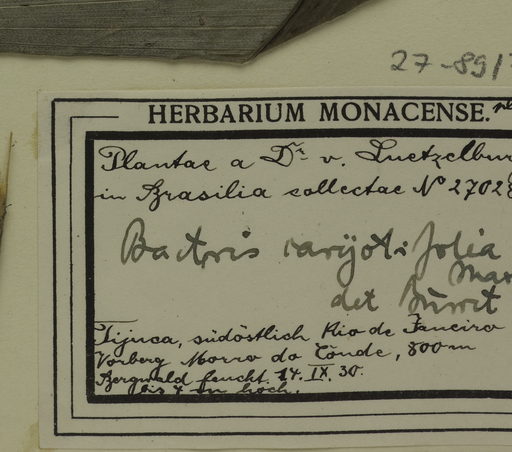 27-89/
HERBARIUM MONACENSE.
Plantae a Dr. v. Luetzelbur
in Brasilia collectae No 2702
Bactris caryotifolia
Mar
det Burret
Tijuca, südöstlich Rio de Janeiro
Vorberg Morro do Conde, 800 m
Bergwald feucht. 14. IX. 30.
bis 4 m hoch.